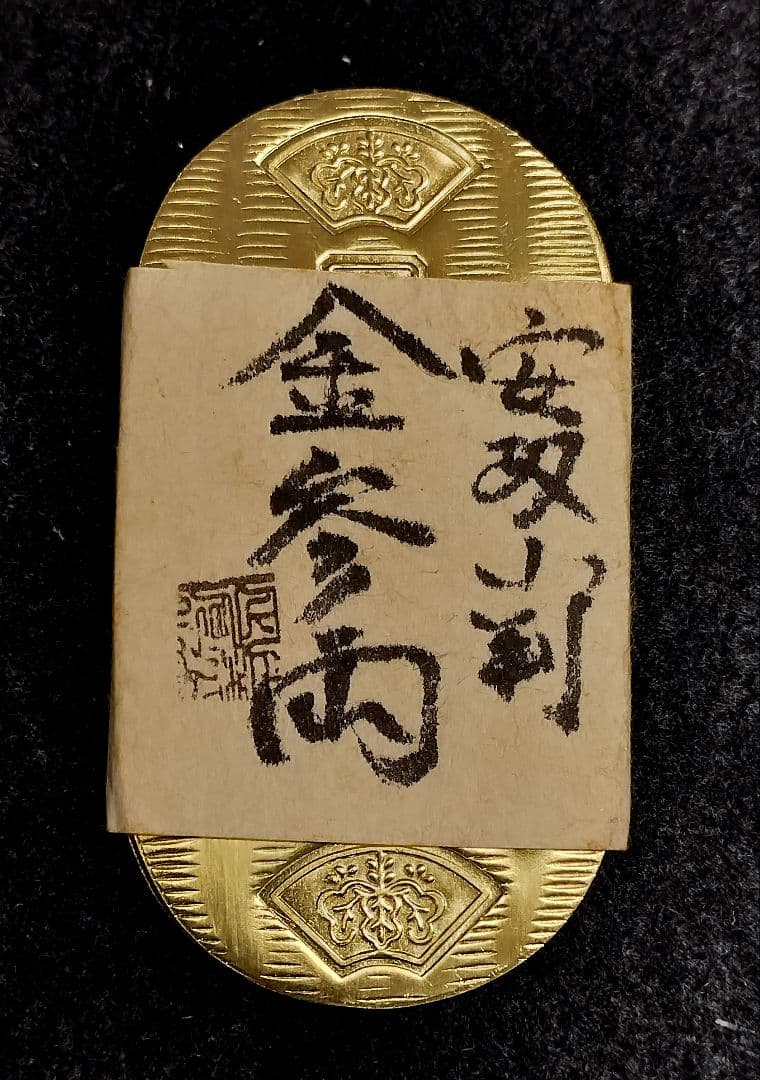 安政小判
金参両